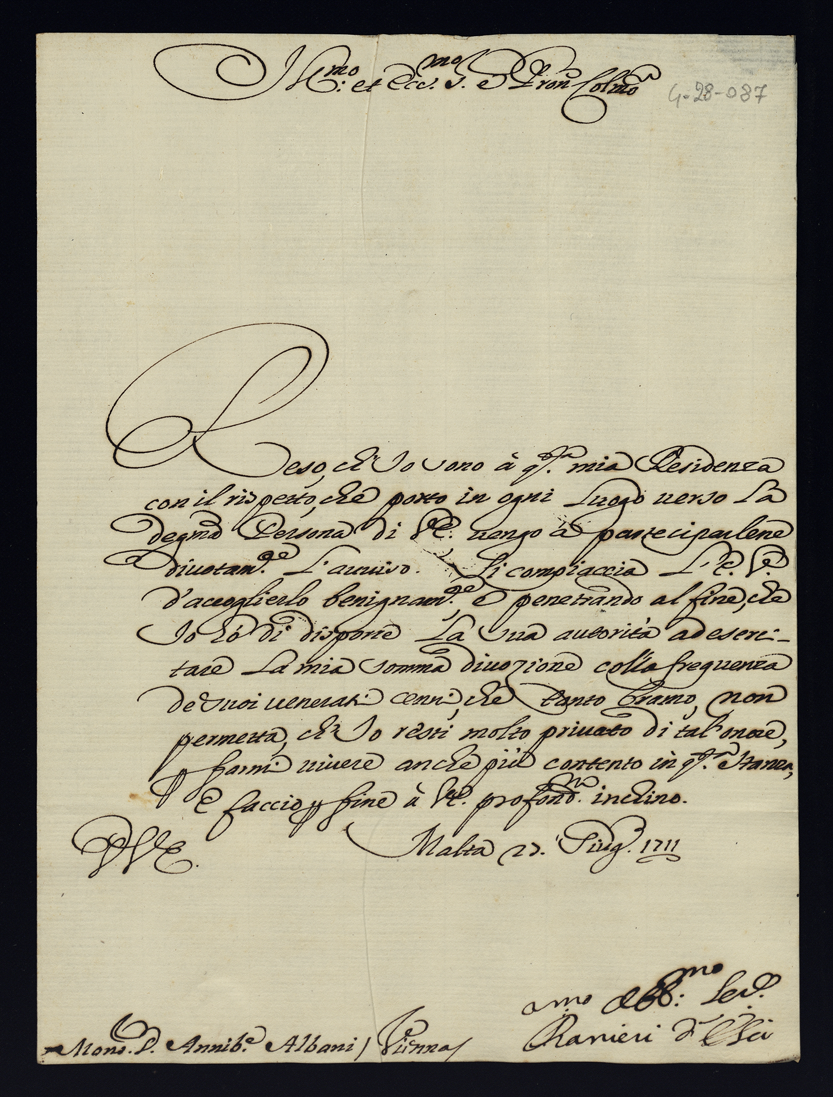 Ill.mo: et Ecc.mo S. e Pron Colmo
G-28-087
Reso, ch' Io sono à q.sta mia Residenza
con il rispetto, che porto in ogni Luogo verso La
degna Persona di V.E. vengo à parteciparlene
divotam.te L'arrivo. Si compiaccia L'E.V.
d'accoglierlo benignam.te e penetrando al fine, che
Io hò di disporre La sua autorità ad eserci-
tare La mia somma divozione colla frequenza
de suoi venerati cenni, che tanto bramo, non
permetta, ch' Io resti molto privato di tal' onore,
p farmi vivere anche più contento in q.sta Stanza,
E faccio p fine à V.E. profond.ma inchino.
Malta 27. Giug.o 1711
V.E.
Mons. S. Annib.e Albani / Vienna /
amo Obb:mo Ser.e
Ranieri d'Elci